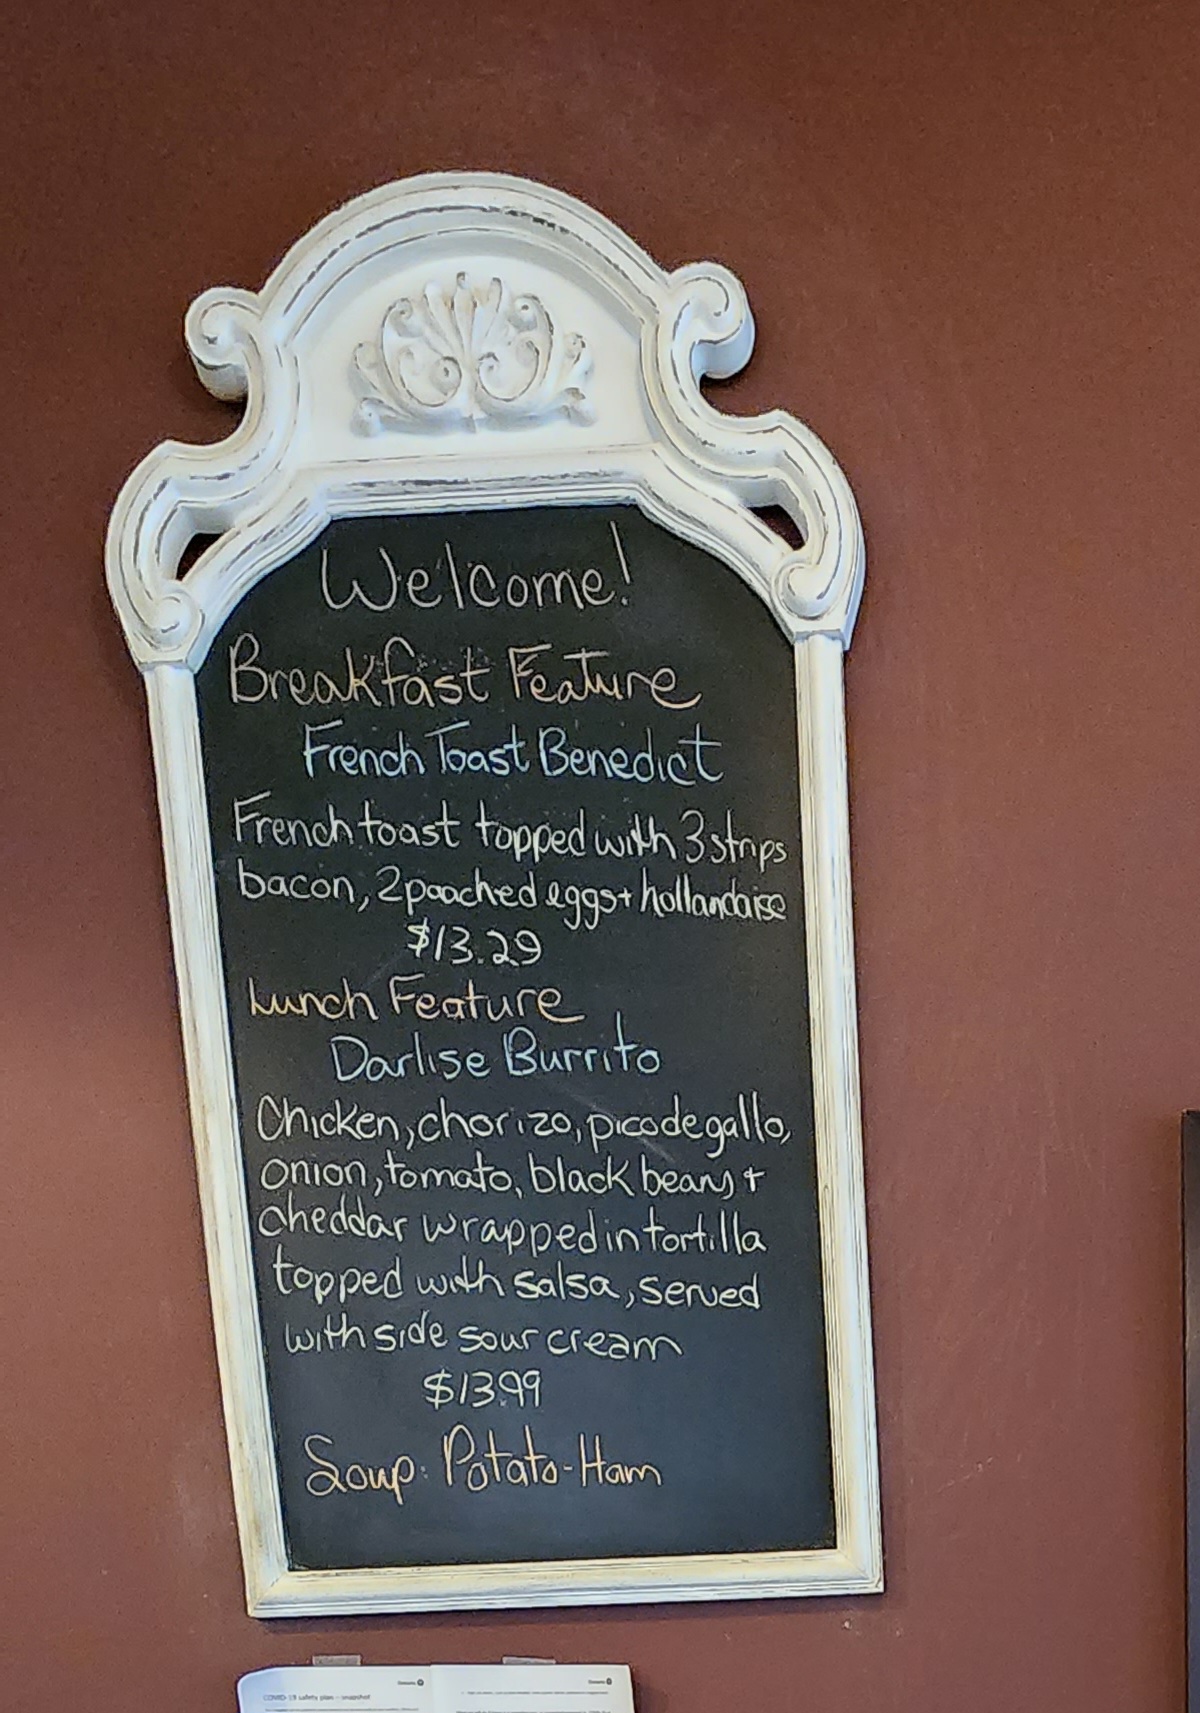 Welcome!
Breakfast Feature
French Toast Benedict
French toast topped with 3 strips
bacon, 2 poached eggs + hollandaise
$13.29
Lunch Feature
Darlise Burrito
Chicken, chorizo, pico de gallo,
onion, tomato, black beans +
cheddar wrapped in tortilla
topped with salsa, served
with side sour cream
$13.99
Soup: Potato-Ham
COVID-19 safety plan – snapshot
Ontario
Ontario